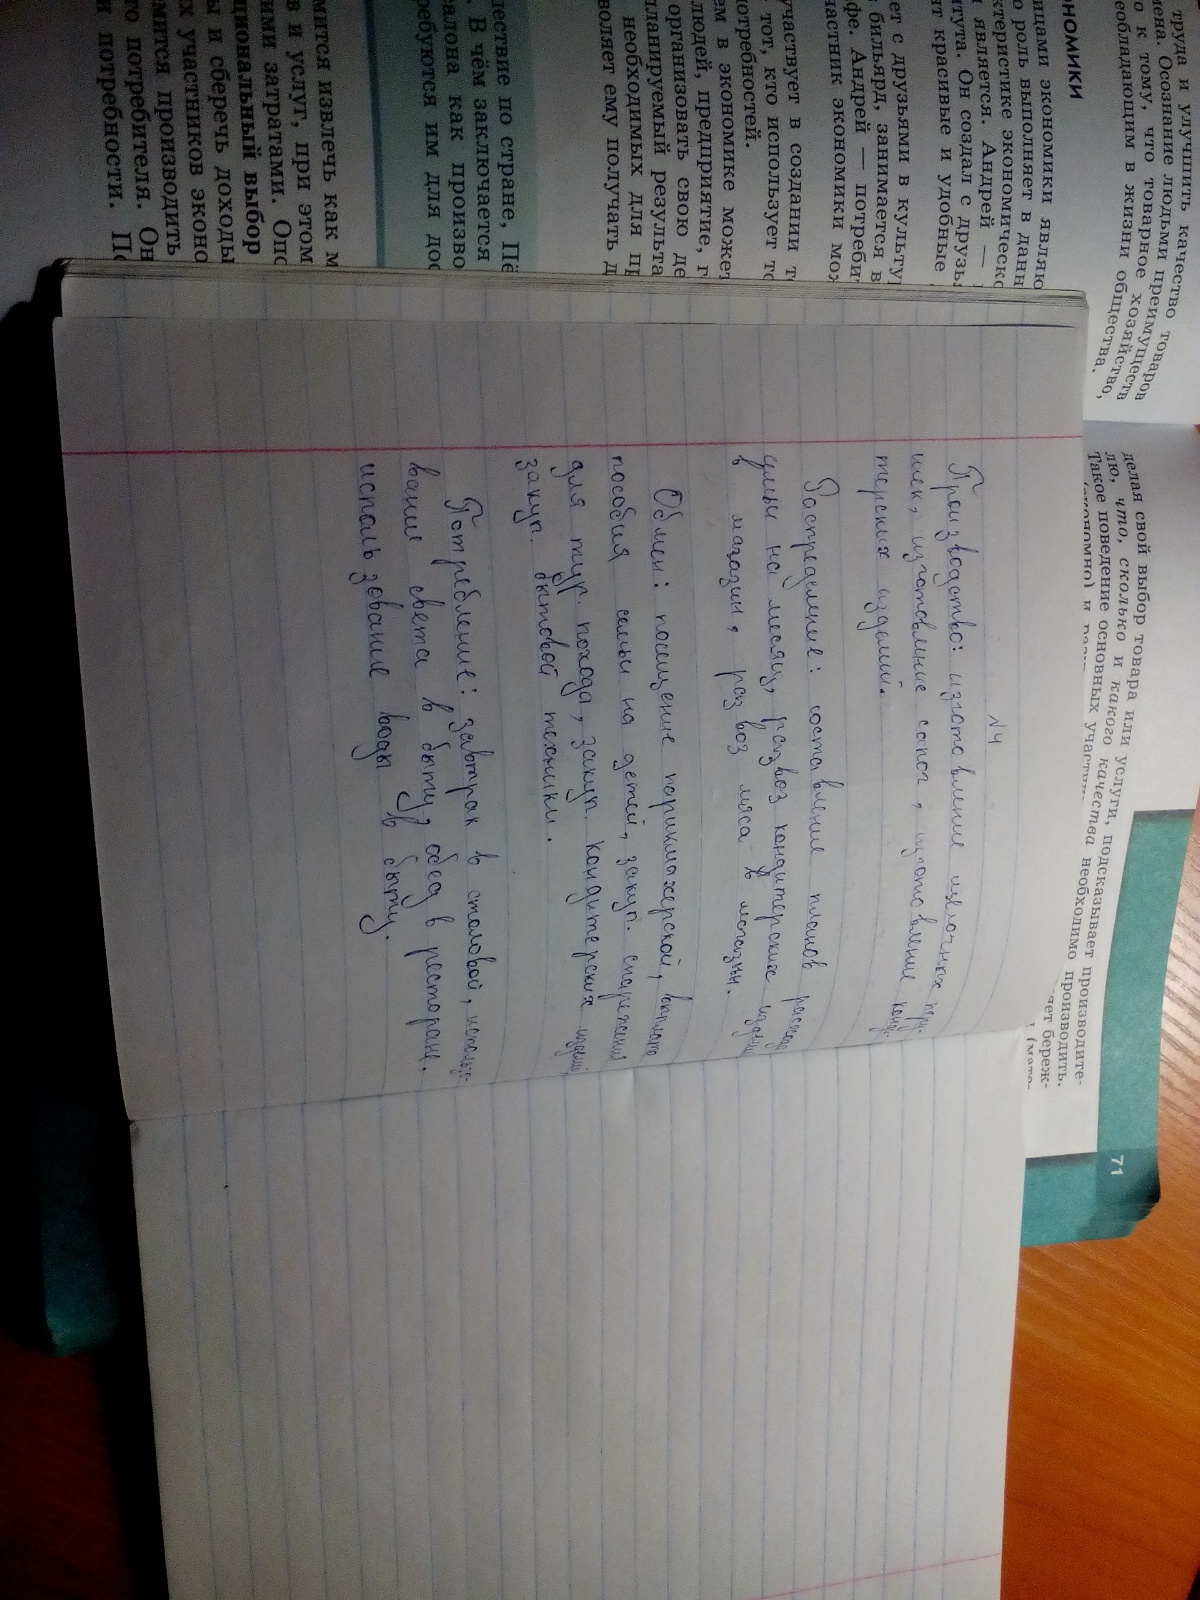 №4
Производство: изготовление щелочных
шек, изготовление сапог, изготовление конди-
терских изделий.
Распределение: составление планов расхода
семьи на месяц, развоз кондитерских изделий
в магазин, развоз мяса в магазины.
Обмен: посещение парикмахерской, выплата
пособия семьи на детей, закуп. снаряжения
для тур. похода, закуп. кондитерских изделий,
закуп. бытовой техники.
Потребление: завтрак в столовой, использо-
вание света в быту, обед в ресторане.
использование воды в быту.
труда и улучшить качество товаров
мена. Осознание людьми преимуществ
о к тому, что товарное хозяйство
еобладающим в жизни общества,
ОНОМИКИ
ицами экономики являю
о роль выполняет в данн
ктеристике экономическо
является. Андрей —
тута. Он создал с друзь
т красивые и удобные
ет с друзьями в культу
бильярд, занимается в
фе. Андрей — потребит
частник экономики мож
участвует в создании т
тот, кто использует то
потребностей.
ем в экономике может
людей, предприятие, г
организовать свою де
планируемый результа
необходимых для п
воляет ему получать д
шествие по стране, Пё
. В чём заключается
алона как произво
ребуются им для дос
мится извлечь как м
в и услуг, при этом
ими затратами. Опо
циональный выбор
ы и сберечь доходы
х участников эконо
мится производить
го потребителя. Он
и потребности. По
делая свой выбор товара или услуги, подсказывает производите-
лю, что, сколько и какого качества необходимо производить.
Такое поведение основных участни
яет береж-
71